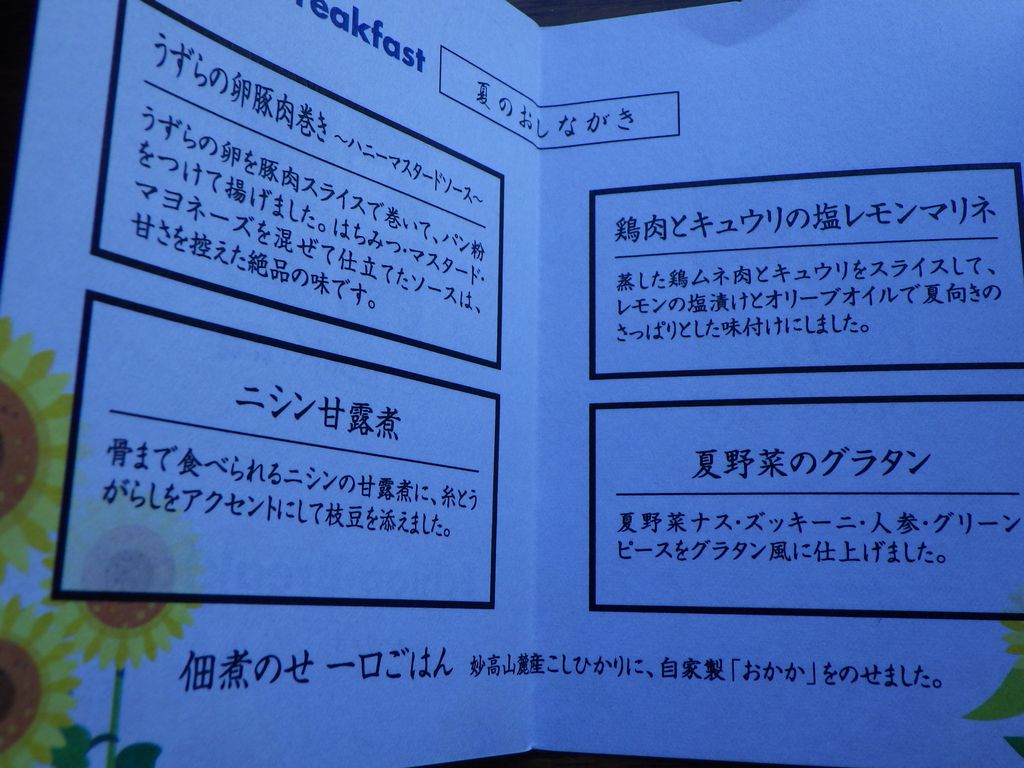 reakfast
夏のおしながき
うずらの卵豚肉巻き ～ハニーマスタードソース～
うずらの卵を豚肉スライスで巻いて、パン粉
をつけて揚げました。はちみつ・マスタード・
マヨネーズを混ぜて仕立てたソースは、
甘さを控えた絶品の味です。
ニシン甘露煮
骨まで食べられるニシンの甘露煮に、糸とう
がらしをアクセントにして枝豆を添えました。
鶏肉とキュウリの塩レモンマリネ
蒸した鶏ムネ肉とキュウリをスライスして、
レモンの塩漬けとオリーブオイルで夏向きの
さっぱりとした味付けにしました。
夏野菜のグラタン
夏野菜ナス・ズッキーニ・人参・グリーン
ピースをグラタン風に仕上げました。
佃煮のせ 一口ごはん 妙高山麓産こしひかりに、自家製「おかか」をのせました。